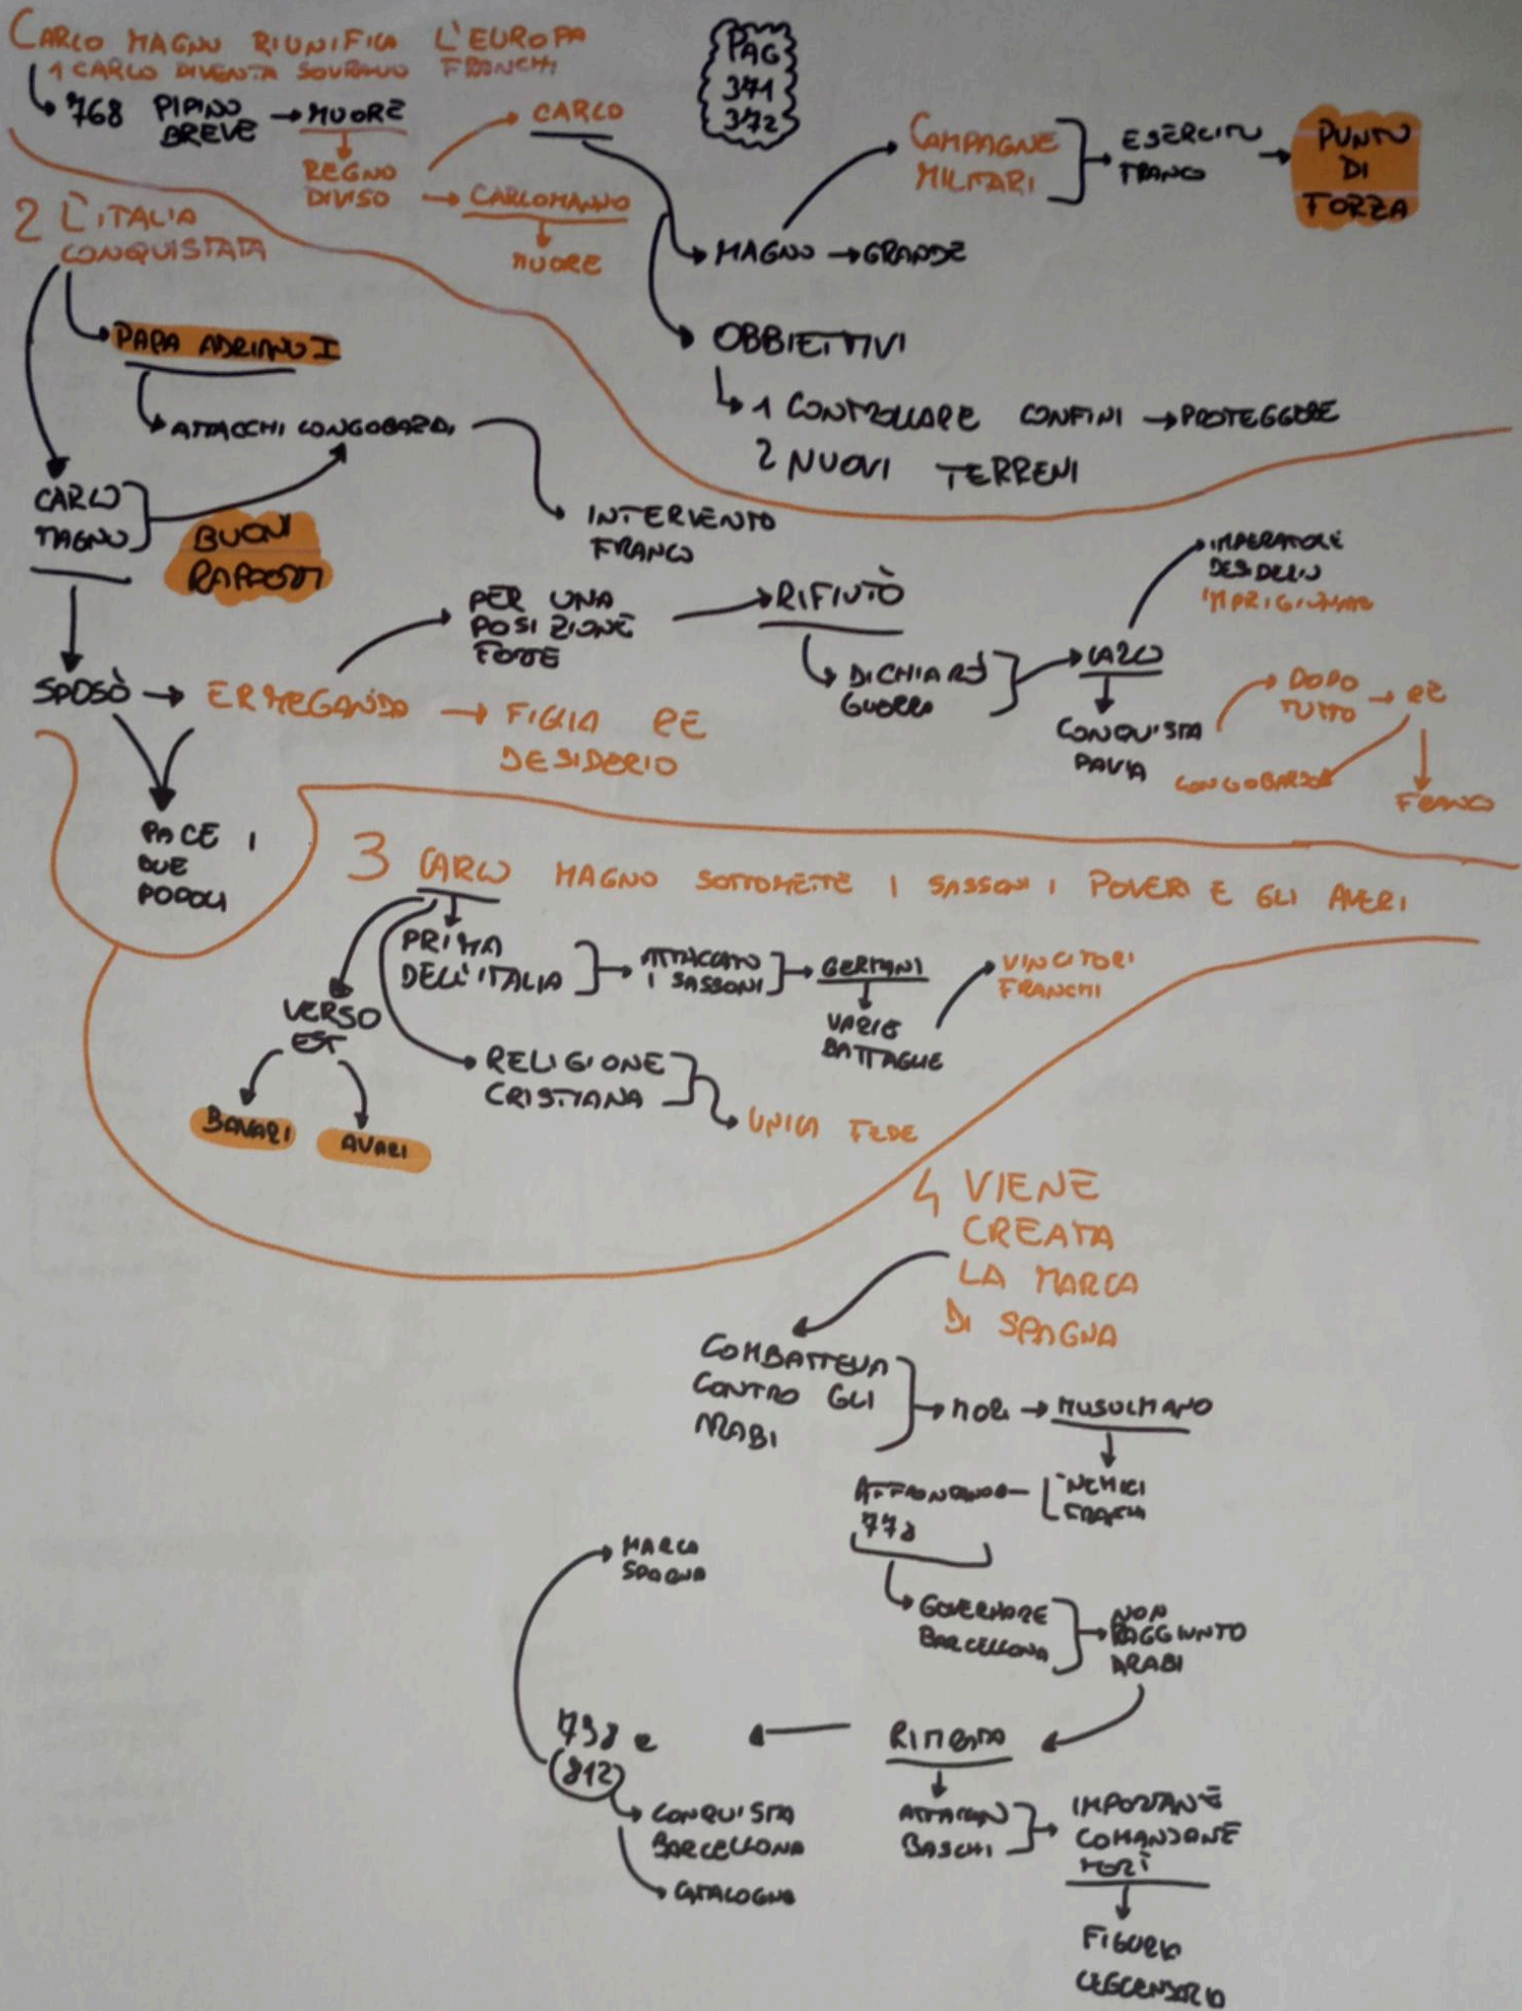 CARLO MAGNO RIUNIFICA L'EUROPA
1 CARLO DIVENTA SOVRANO FRANCHI
768 PIPINO
BREVE
MUORE
REGNO
DIVISO
CARLO
CARLOMANNO
MUORE
PAG
371
372
CAMPAGNE
MILITARI
ESERCITO
FRANCO
PUNTO
DI
FORZA
MAGNO
GRANDE
OBBIETTIVI
1 CONTROLLARE CONFINI
PROTEGGERE
2 NUOVI TERRENI
2 L'ITALIA
CONQUISTATA
PAPA ADRIANO I
ATTACCHI LONGOBARDI
INTERVENTO
FRANCO
CARLO
MAGNO
BUONI
RAPPORTI
SPOSÒ
ERMEGANDA
FIGLIA RE
DESIDERIO
PER UNA
POSIZIONE
FORTE
RIFIUTÒ
DICHIARÒ
GUERRA
CARLO
IMPERATORE
DESIDERIO
CONQUISTA
PAVIA
DOPO
TUTTO
RE
LONGOBARDO
FRANCO
PACE I
DUE
POPOLI
3 CARLO MAGNO SOTTOMETTE I SASSONI I POVERI E GLI AVERI
PRIMA
DELL'ITALIA
ATTACCATO
I SASSONI
GERMANI
VARIE
BATTAGLIE
VINCITORI
FRANCHI
VERSO
EST
BAVARI
AVARI
RELIGIONE
CRISTIANA
UNICA FEDE
4 VIENE
CREATA
LA MARCA
DI SPAGNA
COMBATTEVA
CONTRO GLI
ARABI
MORI
MUSULMANO
NEMICI
AFFRONTANDO
778
GOVERNARE
BARCELLONA
NON
RAGGIUNTO
ARABI
BASCHI
IMPORTANTE
COMANDANTE
MORÌ
FIGURA
LEGGENDARIA
798 e
812
CONQUISTA
BARCELLONA
CATALOGNA
MARCA
SPAGNA